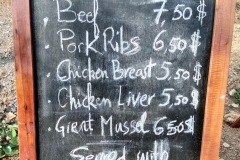 Beef 7,50$
. Pork Ribs 6,50$
. Chicken Breast 5,50$
. Chicken Liver 5,50$
. Giant Mussel 6,50$
Served with